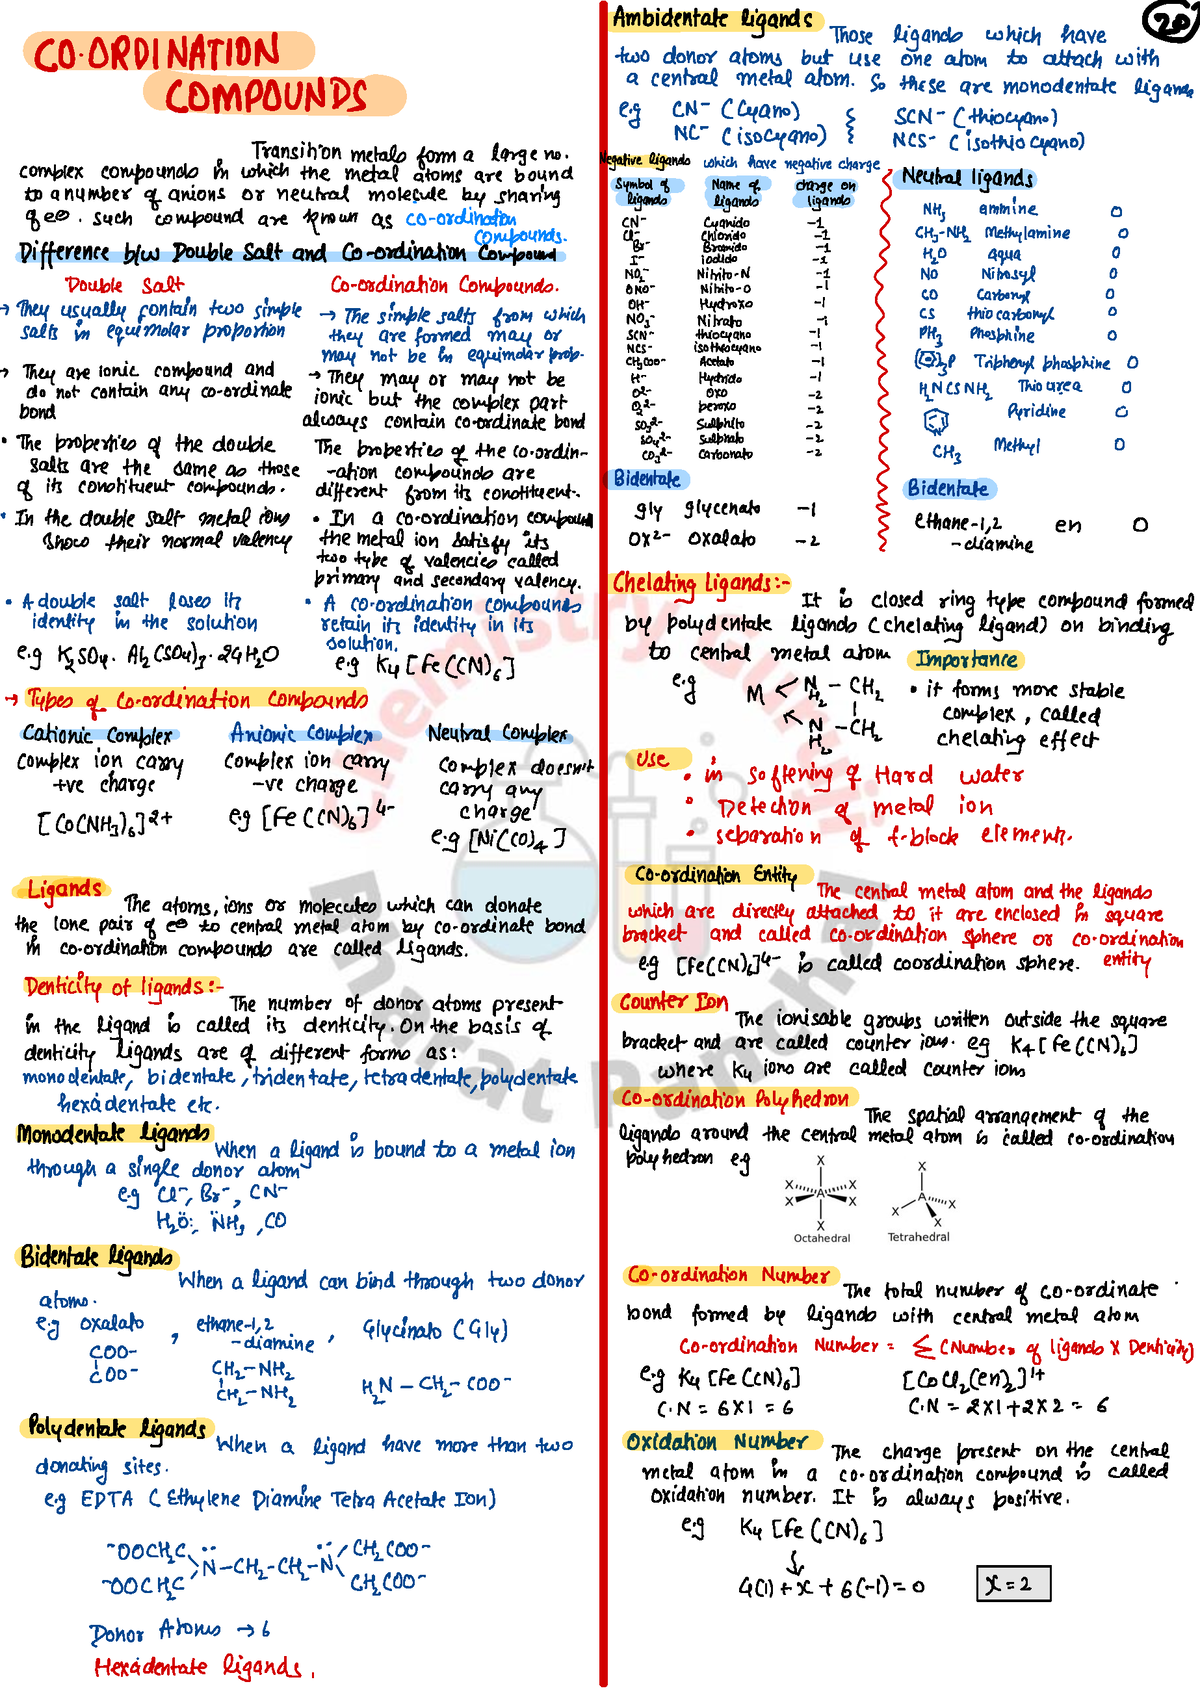 CO-ORDINATION
COMPOUNDS
Transition metals form a large no.
complex compounds in which the metal atoms are bound
to a number of anions or neutral molecule by sharing
of e⊖. such compound are known as co-ordination
compounds.
Difference b/w Double Salt and Co-ordination Compound
Double Salt
→ They usually contain two simple
salts in equimolar proportion
→ They are ionic compound and
do not contain any co-ordinate
bond
• The properties of the double
salts are the same as those
of its constituent compounds.
• In the double salt metal ions
show their normal valency
• A double salt loses its
identity in the solution
e.g K2SO4. Al2(SO4)3. 24H2O
Co-ordination Compounds.
→ The simple salts from which
they are formed may or
may not be in equimolar prop.
→ They may or may not be
ionic but the complex part
always contain co-ordinate bond
The properties of the co-ordin-
-ation compounds are
different from its constituent.
• In a co-ordination compound
the metal ion satisfy its
two type of valencies called
primary and secondary valency.
• A co-ordination compounds
retain its identity in its
solution.
e.g K4[Fe(CN)6]
→ Types of Co-ordination Compounds
Cationic Complex
Complex ion carry
+ve charge
[Co(NH3)6]2+
Anionic Complex
Complex ion carry
-ve charge
eg [Fe(CN)6]4-
Neutral Complex
Complex doesn't
carry any
charge
e.g [Ni(CO)4]
Ligands
The atoms, ions or molecules which can donate
the lone pair of e⊖ to central metal atom by co-ordinate bond
in co-ordination compounds are called ligands.
Denticity of ligands:-
The number of donor atoms present
in the ligand is called its denticity. On the basis of
denticity ligands are of different forms as:
monodentate, bidentate, tridentate, tetradentate, polydentate
hexadentate etc.
Monodentate ligands
When a ligand is bound to a metal ion
through a single donor atom
e.g Cl-, Br-, CN-
H2Ö:, N̈H3, CO
Bidentate ligands
When a ligand can bind through two donor
atoms.
e.g oxalato , ethane-1,2 -diamine , Glycinato (Gly)
COO-
COO-
CH2-NH2
CH2-NH2
H2N-CH2-COO-
Polydentate ligands
When a ligand have more than two
donating sites.
e.g EDTA (Ethylene Diamine Tetra Acetate Ion)
-OOCH2C
-OOCH2C
N-CH2-CH2-N
CH2COO-
CH2COO-
Donor Atoms → 6
Hexadentate ligands.
20
Ambidentate ligands
Those ligands which have
two donor atoms but use one atom to attach with
a central metal atom. So these are monodentate ligands
e.g CN- (Cyano) SCN- (thiocyano)
NC- (isocyano) NCS- (isothiocyano)
Negative ligands which have negative charge
Symbol of ligands Name of ligands charge on ligands
CN- Cyanido -1
Cl- Chlorido -1
Br- Bromido -1
I- iodido -1
NO2- Nitrito-N -1
ONO- Nitrito-O -1
OH- Hydroxo -1
NO3- Nitrato -1
SCN- thiocyano -1
NCS- isothiocyano -1
CH3COO- Acetato -1
H- Hydrido -1
O2- oxo -2
O22- peroxo -2
SO32- Sulphito -2
SO42- Sulphato -2
CO32- Carbonato -2
Bidentate
gly glycenato -1
Ox2- Oxalato -2
Neutral ligands
NH3 ammine 0
CH3-NH2 Methylamine 0
H2O aqua 0
NO Nitrosyl 0
CO Carbonyl 0
CS thiocarbonyl 0
PH3 Phosphine 0
( )3P Triphenyl phosphine 0
H2NCSNH2 Thiourea 0
N Pyridine 0
CH3 Methyl 0
Bidentate
ethane-1,2 en 0
-diamine
Chelating Ligands:-
It is closed ring type compound formed
by polydentate ligands (chelating ligand) on binding
to central metal atom
e.g M
N H2 - CH2
N H2 - CH2
Importance
• it forms more stable
complex, called
chelating effect
Use
• in softening of Hard water
• Detection of metal ion
• separation of f-block elements.
Co-ordination Entity
The central metal atom and the ligands
which are directly attached to it are enclosed in square
bracket and called co-ordination sphere or co-ordination
entity
e.g [Fe(CN)6]4- is called coordination sphere.
Counter Ion
The ionisable groups written outside the square
bracket and are called counter ions. eg K4[Fe(CN)6]
where K4 ions are called counter ions
Co-ordination Polyhedron
The spatial arrangement of the
ligands around the central metal atom is called co-ordination
polyhedron e.g
X X X A X X X
Octahedral
X A X X X
Tetrahedral
Co-ordination Number
The total number of co-ordinate
bond formed by ligands with central metal atom
Co-ordination Number = Σ (Number of ligands x Denticity)
e.g K4[Fe(CN)6]
C.N = 6x1 = 6
[CoCl2(en)2]1+
C.N = 2x1+2x2 = 6
Oxidation Number
The charge present on the central
metal atom in a co-ordination compound is called
oxidation number. It is always positive.
e.g K4[Fe(CN)6]
4(1)+x+6(-1)=0
x=2
Chemistry Guruji
Bharat Panchal